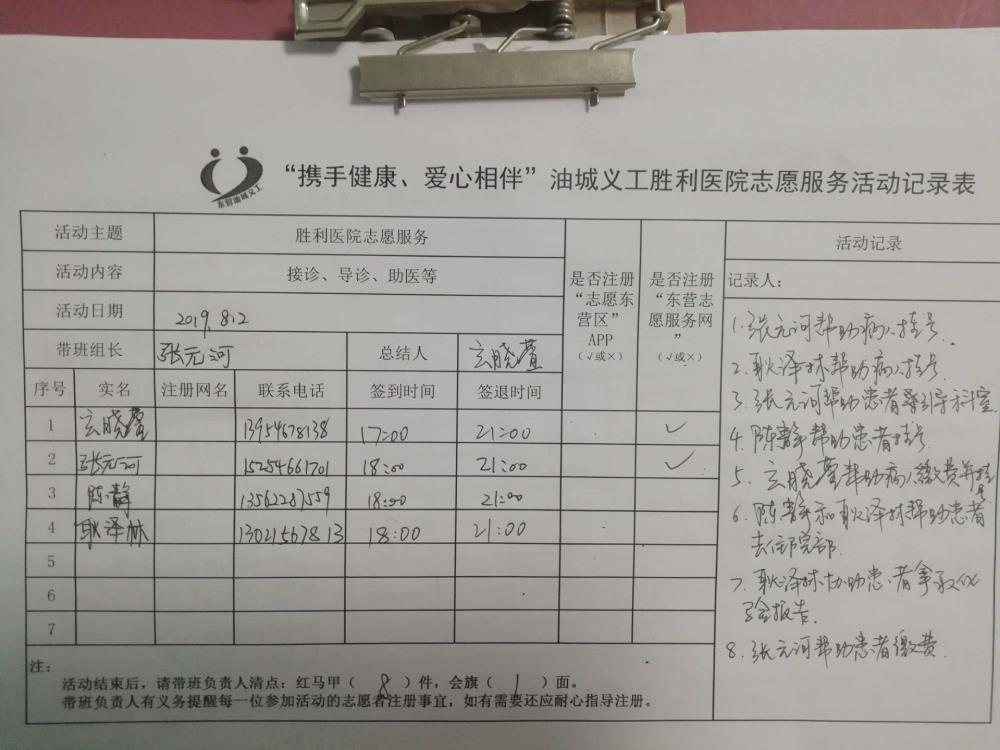 东营油城义工
“携手健康、爱心相伴”油城义工胜利医院志愿服务活动记录表
活动主题 胜利医院志愿服务
活动内容 接诊、导诊、助医等
活动日期 2019.8.2
带班组长 张元河 总结人 玄晓萱
是否注册“志愿东营区”APP（√或×）
是否注册“东营志愿服务网”（√或×）
序号 实名 注册网名 联系电话 签到时间 签退时间
1 玄晓萱 13954678138 17:00 21:00 ✓
2 张元河 15254661701 18:00 21:00 ✓
3 陈静 13562287559 18:00 21:00
4 耿泽林 13021567813 18:00 21:00
5
6
7
注：
活动结束后，请带班负责人清点：红马甲（ 8 ）件，会旗（ 1 ）面。
带班负责人有义务提醒每一位参加活动的志愿者注册事宜，如有需要还应耐心指导注册。
活动记录
记录人：
1.张元河帮助病人挂号.
2.耿泽林帮助病人挂号.
3.张元河帮助患者导引导科室
4.陈静帮助患者挂号.
5.玄晓萱帮助病人缴费并挂号
6.陈静和耿泽林帮助患者
去住院部.
7.耿泽林协助患者拿取化
验报告.
8.张元河帮助患者缴费.